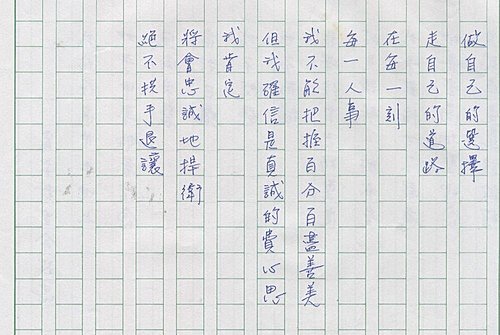 做自己的選擇
走自己的道路
在每一刻
每一人事
我不能把握百分百盡善美
但我確信是真誠的費心思
我肯定
將會忠誠地捍衛
絕不拱手退讓